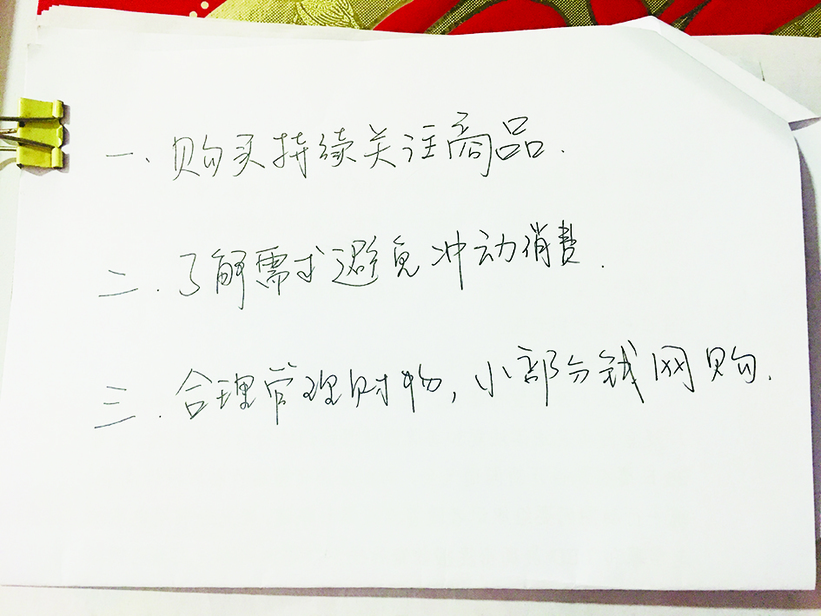 一、购买持续关注商品.
二.了解需求避免冲动消费.
三.合理管理财物,小部分钱网购.